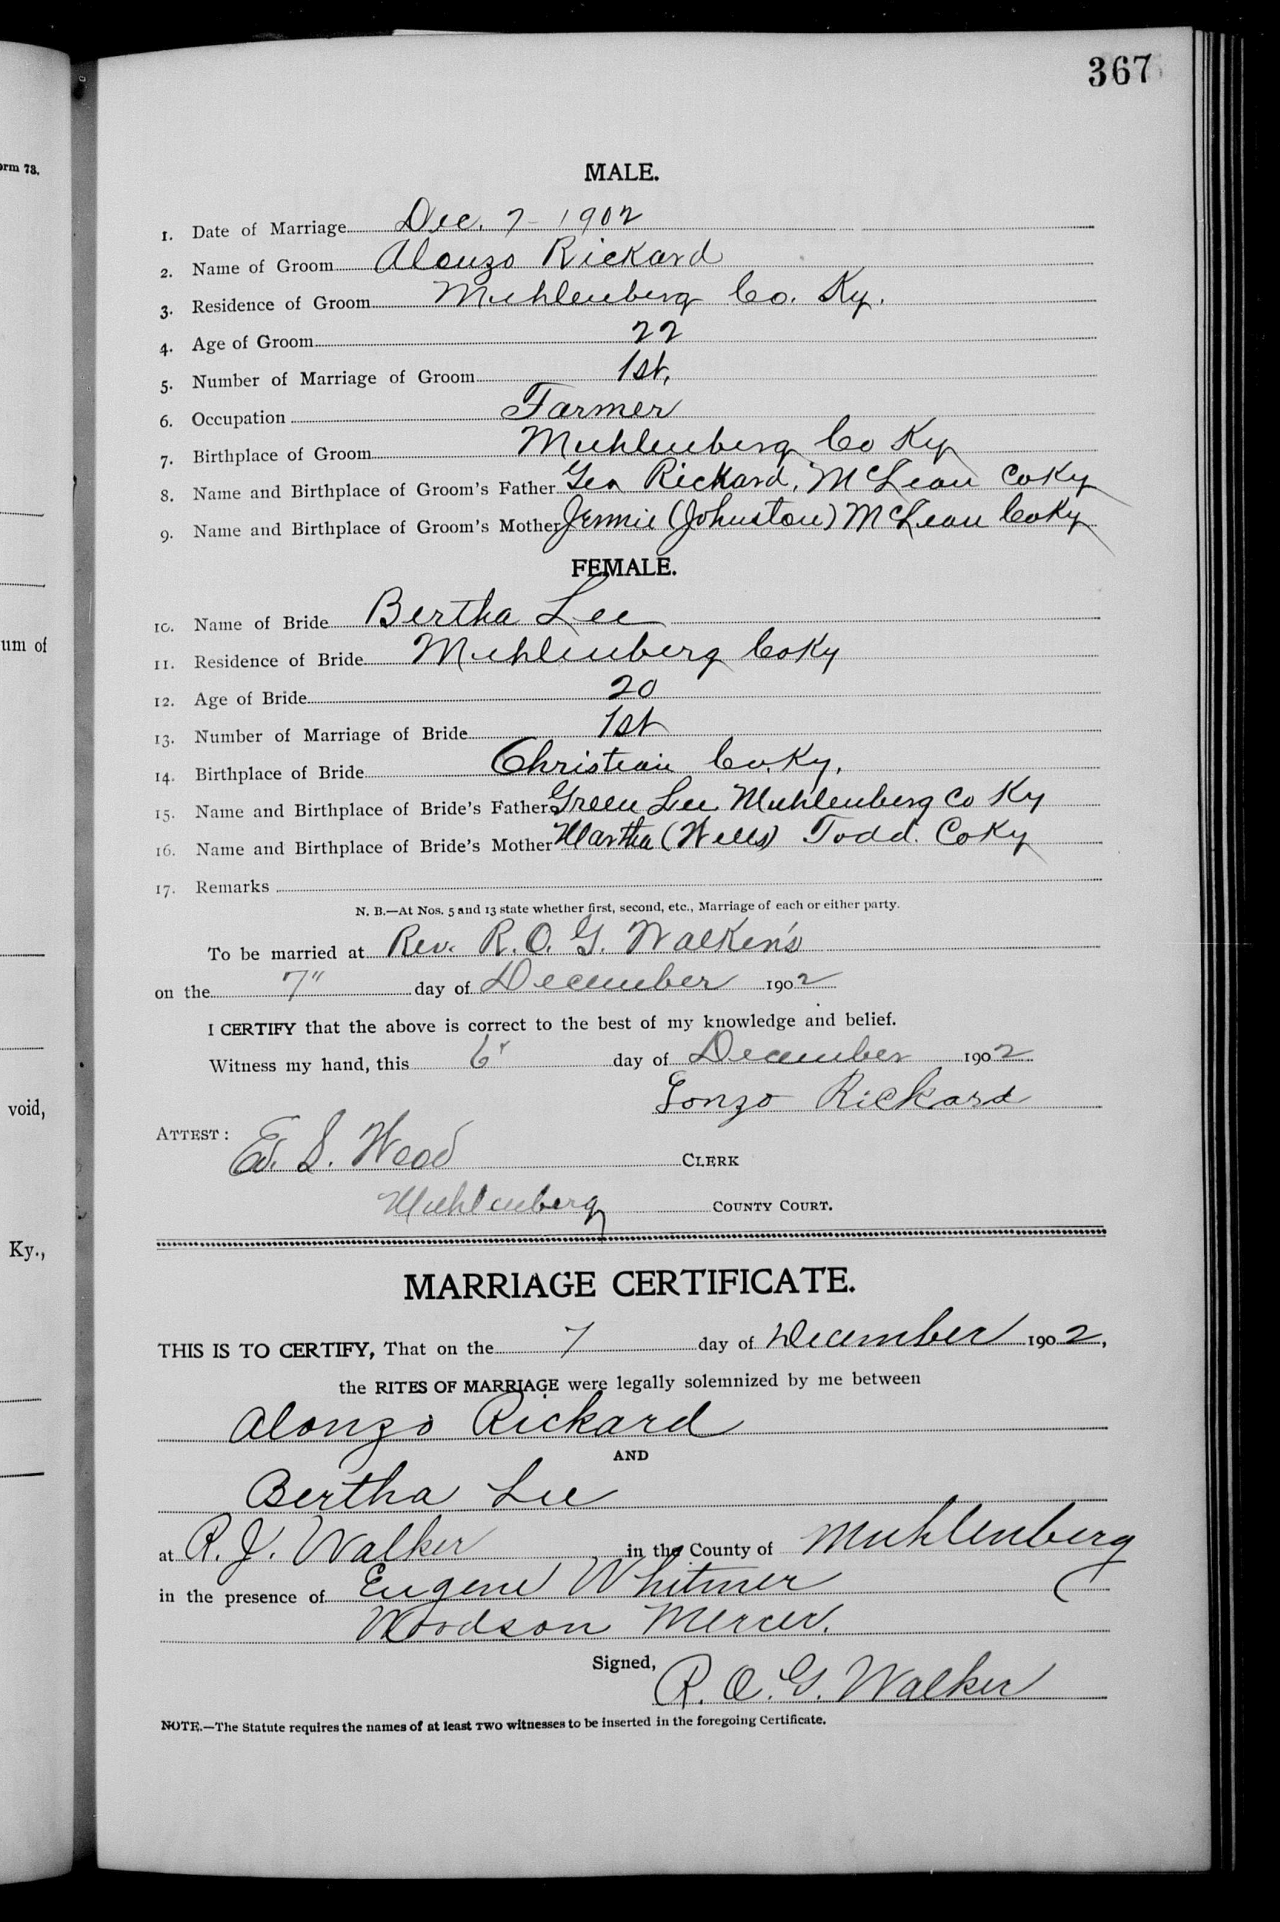 367
orm 73.
MALE.
1. Date of Marriage Dec. 7 - 1902
2. Name of Groom Alonzo Rickard
3. Residence of Groom Muhlenberg Co. Ky.
4. Age of Groom 22
5. Number of Marriage of Groom 1st.
6. Occupation Farmer
7. Birthplace of Groom Muhlenberg Co Ky
8. Name and Birthplace of Groom's Father Geo Rickard, McLean Co Ky
9. Name and Birthplace of Groom's Mother Jennie (Johnston) McLean Co Ky
FEMALE.
10. Name of Bride Bertha Lee
um of
11. Residence of Bride Muhlenberg Co Ky
12. Age of Bride 20
13. Number of Marriage of Bride 1st
14. Birthplace of Bride Christian Co. Ky.
15. Name and Birthplace of Bride's Father Green Lee Muhlenberg Co Ky
16. Name and Birthplace of Bride's Mother Martha (Wells) Todd. Co Ky
17. Remarks
N. B.—At Nos. 5 and 13 state whether first, second, etc., Marriage of each or either party.
To be married at Rev. R. O. G. Walker's
on the 7" day of December 1902
I CERTIFY that the above is correct to the best of my knowledge and belief.
Witness my hand, this 6" day of December 1902
void,
Lonzo Rickard
ATTEST: Ed. S. Wood CLERK
Muhlenberg COUNTY COURT.
Ky.,
MARRIAGE CERTIFICATE.
THIS IS TO CERTIFY, That on the 7 day of December 1902,
the RITES OF MARRIAGE were legally solemnized by me between
Alonzo Rickard
AND
Bertha Lee
at R. J. Walker in the County of Muhlenberg
in the presence of Eugene Whitmer
Woodson Mercer.
Signed, R. O. G. Walker
NOTE.—The Statute requires the names of at least TWO witnesses to be inserted in the foregoing Certificate.